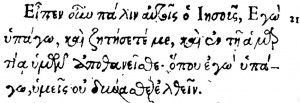 Εἶπεν οὖν πάλιν αὐτοῖς ὁ Ἰησοῦς, Ἐγὼ
ὑπάγω, καὶ ζητήσετέ με, καὶ ἐν τῇ ἁμαρ 21
τίᾳ ὑμῶν ἀποθανεῖσθε· ὅπου ἐγὼ ὑπά-
γω, ὑμεῖς οὐ δύνασθε ἐλθεῖν.